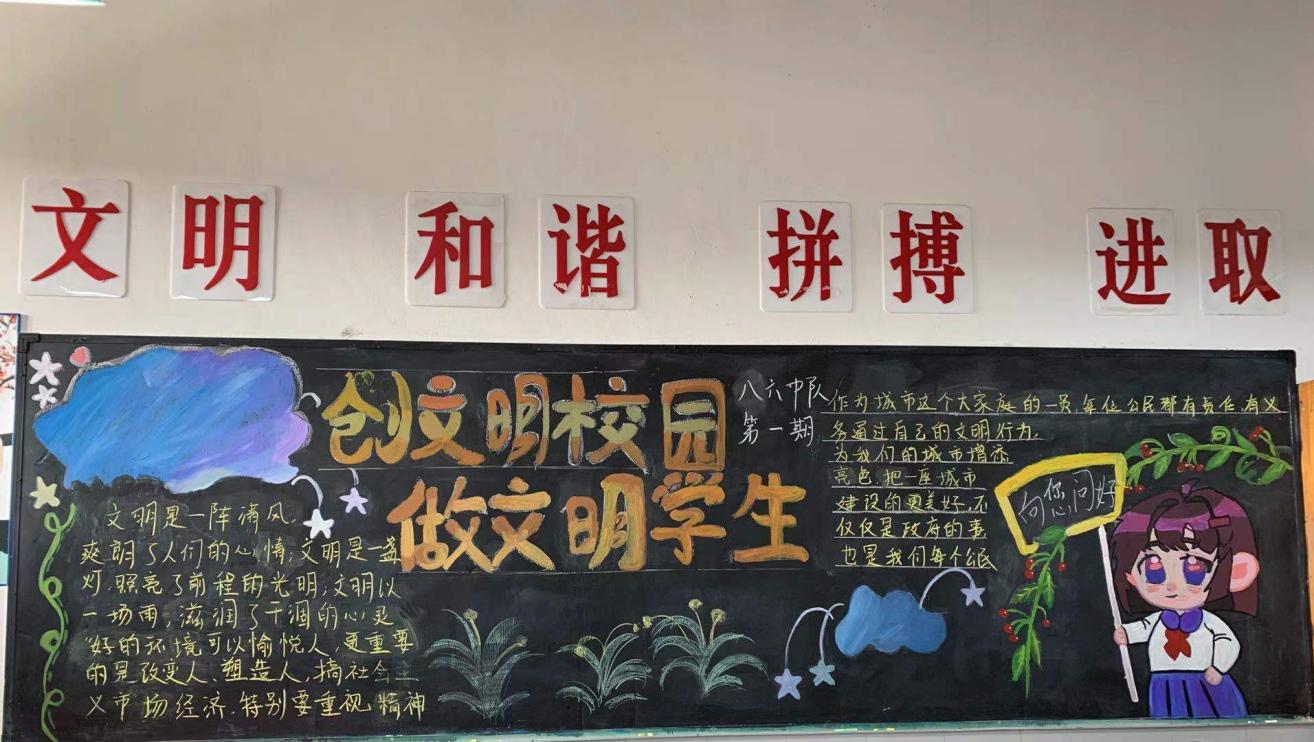 文明 和谐 拼搏 进取
创文明校园
做文明学生
八六中队
第一期
文明是一阵清风,
爽朗了人们的心情,文明是一盏
灯,照亮了前程的光明;文明以
一场雨,滋润了干涸的心灵
好的环境可以愉悦人,更重要
的是改变人、塑造人,搞社会主
义市场经济.特别要重视精神
作为城市这个大家庭的一员,每位公民都有责任,有义
务通过自己的文明行为,
为我们的城市增添
亮色.把一座城市
建设的更美好,不
仅仅是政府的事
也是我们每个公民
向您问好